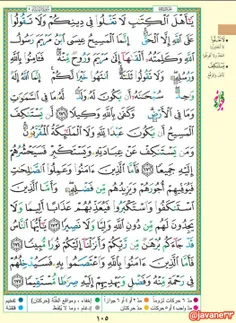 يَٰٓأَهْلَ ٱلْكِتَٰبِ لَا تَغْلُوا۟ فِى دِينِكُمْ وَلَا تَقُولُوا۟
عَلَى ٱللَّهِ إِلَّا ٱلْحَقَّ إِنَّمَا ٱلْمَسِيحُ عِيسَى ٱبْنُ مَرْيَمَ رَسُولُ
ٱللَّهِ وَكَلِمَتُهُۥٓ أَلْقَىٰهَآ إِلَىٰ مَرْيَمَ وَرُوحٌ مِّنْهُ فَـَٔامِنُوا۟ بِٱللَّهِ
وَرُسُلِهِۦ وَلَا تَقُولُوا۟ ثَلَٰثَةٌ ٱنتَهُوا۟ خَيْرًا لَّكُمْ إِنَّمَا ٱللَّهُ إِلَٰهٌ
وَٰحِدٌ سُبْحَٰنَهُۥٓ أَن يَكُونَ لَهُۥ وَلَدٌ لَّهُۥ مَا فِى ٱلسَّمَٰوَٰتِ
وَمَا فِى ٱلْأَرْضِ وَكَفَىٰ بِٱللَّهِ وَكِيلًا ١٧١ لَّن يَسْتَنكِفَ
ٱلْمَسِيحُ أَن يَكُونَ عَبْدًا لِّلَّهِ وَلَا ٱلْمَلَٰٓئِكَةُ ٱلْمُقَرَّبُونَ
وَمَن يَسْتَنكِفْ عَنْ عِبَادَتِهِۦ وَيَسْتَكْبِرْ فَسَيَحْشُرُهُمْ
إِلَيْهِ جَمِيعًا ١٧٢ فَأَمَّا ٱلَّذِينَ ءَامَنُوا۟ وَعَمِلُوا۟ ٱلصَّٰلِحَٰتِ
فَيُوَفِّيهِمْ أُجُورَهُمْ وَيَزِيدُهُم مِّن فَضْلِهِۦ وَأَمَّا ٱلَّذِينَ
ٱسْتَنكَفُوا۟ وَٱسْتَكْبَرُوا۟ فَيُعَذِّبُهُمْ عَذَابًا أَلِيمًا وَلَا
يَجِدُونَ لَهُم مِّن دُونِ ٱللَّهِ وَلِيًّا وَلَا نَصِيرًا ١٧٣ يَٰٓأَيُّهَا ٱلنَّاسُ
قَدْ جَآءَكُم بُرْهَٰنٌ مِّن رَّبِّكُمْ وَأَنزَلْنَآ إِلَيْكُمْ نُورًا مُّبِينًا ١٧٤
فَأَمَّا ٱلَّذِينَ ءَامَنُوا۟ بِٱللَّهِ وَٱعْتَصَمُوا۟ بِهِۦ فَسَيُدْخِلُهُمْ
فِى رَحْمَةٍ مِّنْهُ وَفَضْلٍ وَيَهْدِيهِمْ إِلَيْهِ صِرَٰطًا مُّسْتَقِيمًا ١٧٥
١٠٥
@javanerr